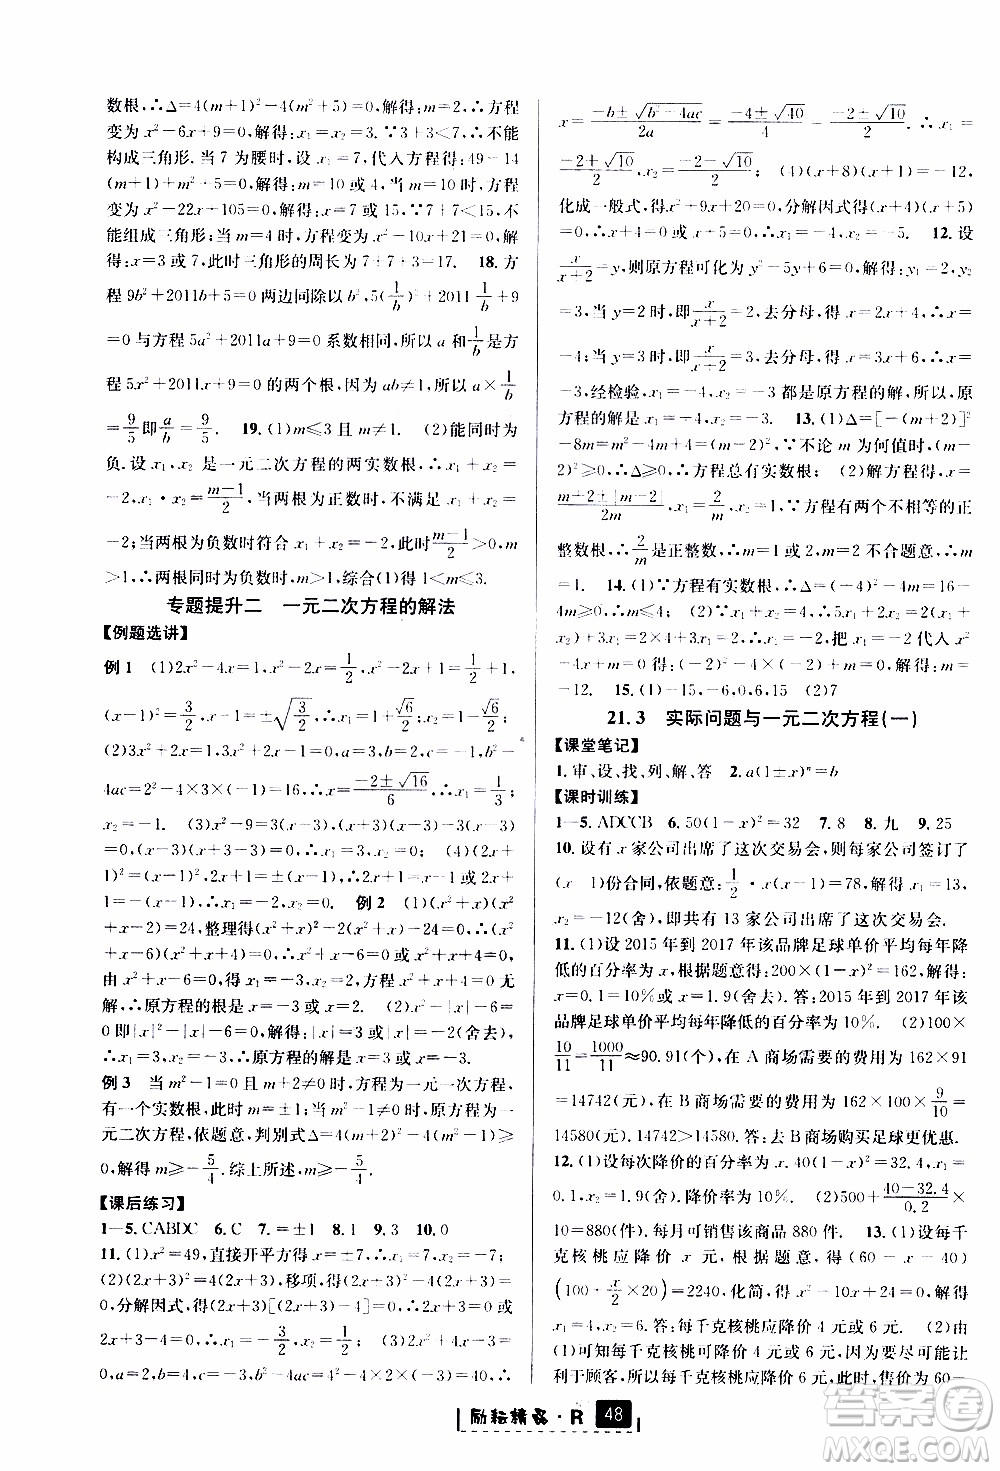 数根,∴Δ=4(m+1)²-4(m²+5)=0,解得:m=2,∴方程
变为x²-6x+9=0,解得:x₁=x₂=3.∵3+3<7,∴不能
构成三角形.当7为腰时,设x₁=7,代入方程得:49-14
(m+1)+m²+5=0,解得:m=10或4,当m=10时,方程
变为x²-22x+105=0,解得:x=7或15.∵7+7<15,不
能组成三角形;当m=4时,方程变为x²-10x+21=0,解
得:x=3或7,此时三角形的周长为7+7+3=17. 18.方
程9b²+2011b+5=0两边同除以b²,5(1/b)²+2011·1/b+9
=0与方程5a²+2011a+9=0系数相同.所以a和1/b是方
程5x²+2011x+9=0的两个根,因为ab≠1,所以a×1/b
=9/5即a/b=9/5. 19.(1)m≤3且m≠1. (2)能同时为
负.设x₁,x₂是一元二次方程的两实数根,则x₁+x₂=
-2,x₁·x₂=(m-1)/2,当两根为正数时,不符合x₁+x₂=
-2;当两根为负数时符合x₁+x₂=-2,此时(m-1)/2>0,m
>1,∴两根同时为负数时,1<m≤3.
专题提升二 一元二次方程的解法
【例题选讲】
例1 (1)2x²-4x=1,x²-2x=1/2,x²-2x+1=1/2+1,
(x-1)²=3/2,x-1=±√(3/2),∴x₁=1+√6/2,x₂=1-√6/2.
(2)3x²+2x=1,3x²+2x-1=0,a=3,b=2,c=-1,b²-
4ac=2²-4×3×(-1)=16,∴x=(-2±√16)/6,∴x₁=1/3,
x₂=-1. (3)(x+3)(x-3)=3(x+3),(x+3)(x-3)
-3(x+3)=0,(x+3)(x-3-3)=0,(x+3)(x-6)=
0,x+3=0或x-6=0,∴x₁=-3,x₂=6. (4)(2x+1)²
+4(2x+1)+4=9,(2x+1+2)²=9,∴2x+3=±3,∴
2x+3=3或2x+3=-3,∴x₁=-3,x₂=0. 例2 (1)(x²+x)(x²
+x-2)=24,整理得:(x²+x)²-2(x²+x)-24=0,∴
(x²+x-6)(x²+x+4)=0,∴x²+x-6=0或x²+x+4=0
解得:x₁=-3,x₂=2,方程x²+x+4=0无
解,∴原方程的根是x=-3或x=2. (2)x²+|x|-6=
0即|x|²+|x|-6=0,解得:|x|=2或|x|=-3(舍去),
∴x₁=2,x₂=-2,∴原方程的解是x₁=2,x₂=-2.
例3 当m²-1=0且m+2≠0时,方程为一元一次方程,
有一个实数根,此时m=±1;当m²-1≠0时,方程为一元
二次方程,依题意,判别式Δ=(m+2)²-4(m²-1)≥
0,解得m≥-5/4.综上所述,m≥-5/4.
【课后练习】
1—5.CABDC 6.C 7.=±1 8.1 9.3 10.0
11.(1)x²=49,直接开平方得:x=±7,∴x₁=7,x₂=-7;
(2)(2x+3)²=4(2x+3),移项得:(2x+3)²-4(2x+3)=
0,分解因式,得(2x+3)[(2x+3)-4]=0,∴2x+3=0或
2x+3-4=0,∴x₁=-3/2,x₂=1/2; (3)2x²+4x-3
=0,a=2,b=4,c=-3,b²-4ac=4²-4×2×(-3)=40,∴
x=(-b±√(b²-4ac))/2a=(-4±√40)/4=(-2±√10)/2.∴x₁=
(-2+√10)/2,x₂=(-2-√10)/2; (4)(x+8)(x+1)=-12,
化成一般式,得x²+9x+20=0,分解因式,得(x+4)(x+5)
=0,∴x+4=0或x+5=0,∴x₁=-4,x₂=-5. 12.设
x/(x+2)=y,则原方程可化为y²-5y+6=0,解得:y₁=2,y₂
=3,当y=2时,x/(x+2)=2,去分母,得x=2x+4,∴x=
-4;当y=3时,x/(x+2)=3,去分母,得x=3x+6,∴x=
-3,经检验,x₁=-4,x₂=-3都是原方程的解,所以,原
方程的解是x₁=-4,x₂=-3. 13.(1)Δ=[-(m+2)]²
-8m=m²-4m+4=(m-2)²,∵不论m为何值时,(m-
2)²≥0,∴Δ≥0,∴方程总有实数根; (2)解方程得,x=
(m+2±|m-2|)/2m,x₁=2/m,x₂=1,∵方程有两个不相等的正
整数根,∴2/m是正整数,∴m=1或2,m=2不合题意,∴m
=1. 14.(1)∵方程x²-4x+m=0有实数根,∴Δ=16-
4m≥0,∴m≤4; (2)∵x₁+x₂=4,∴5x₁+2x₂=2(x₁+
x₂)+3x₁=2×4+3x₁=2,∴x₁=-2,把x₁=-2代入x²
-4x+m=0得:(-2)²-4×(-2)+m=0,解得:m=
-12. 15.(1)-15,-6,0,6,15 (2)7
21.3 实际问题与一元二次方程(一)
【课堂笔记】
1.审、设、找、列、解、答 2.a(1±x)ⁿ=b
【课时训练】
1—5.ADCCB 6.50(1-x)²=32 7.8 8.九 9.25
10.设有x家公司出席了这次交易会,则每家公司签订了
(x-1)份合同,依题意:1/2·x(x-1)=78,解得:x₁=13,
x₂=-12(舍),即共有13家公司出席了这次交易会.
11.(1)设2015年到2017年该品牌足球单价平均每年降
低的百分率为x,根据题意得:200×(1-x)²=162,解得:x
=0.1=10%或x=1.9(舍去).答:2015年到2017年该
品牌足球单价平均每年降低的百分率为10%. (2)100×
10/11=1000/11≈90.91(个),在A商场需要的费用为162×91
=14742(元),在B商场需要的费用为162×100×9/10=
14580(元).14742>14580.答:去B商场购买足球更优惠.
12.(1)设每次降价的百分率为x,40(1-x)²=32.4,x₁=
0.1,x₂=1.9(舍).降价率为10%; (2)500+(40-32.4)/0.2×
10=880(件),每月可销售该商品880件. 13.(1)设每千
克核桃应降价x元,根据题意,得(60-x-40)
(100+x/2×20)=2240,化简,得x²-10x+24=0,解得
x₁=4,x₂=6.答:每千克核桃应降价4元或6元. (2)由
(1)可知每千克核桃可降价4元或6元.∵要尽可能
让利于顾客,所以每千克核桃应降价6元.此时,售价为60-
励耘精品·R 48
答案圈
MXQE.COM